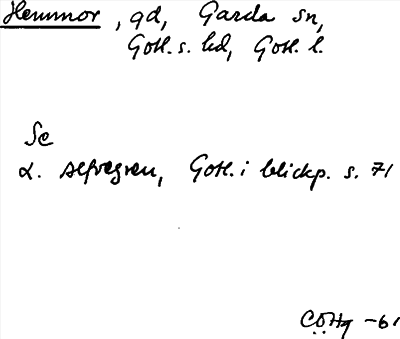 Hemmor, gd, Garda sn,
Gotl. s. hd, Gotl. l.
Se
L. Alfvegren, Gotl. i blickp. s. 71
CÖHg -61